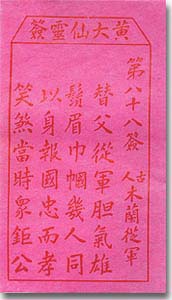 黃大仙靈簽
第八十八簽
古人木蘭從軍
替父從軍胆氣雄
鬚眉巾幗幾人同
以身報國忠而孝
笑煞當時眾鉅公